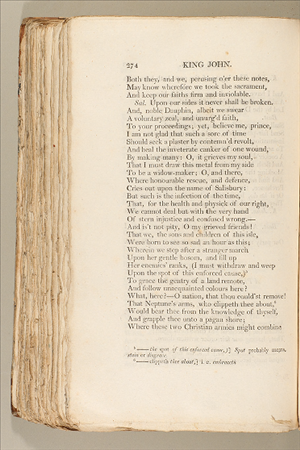 274 KING JOHN.
Both they, and we, perusing o'er these notes,
May know wherefore we took the sacrament,
And keep our faiths firm and inviolable.
Sal. Upon our sides it never shall be broken.
And, noble Dauphin, albeit we swear
A voluntary zeal, and unurg'd faith,
To your proceedings; yet, believe me, prince,
I am not glad that such a sore of time
Should seek a plaster by contemn'd revolt,
And heal the inveterate canker of one wound,
By making many: O, it grieves my soul,
That I must draw this metal from my side
To be a widow-maker; O, and there,
Where honourable rescue, and defence,
Cries out upon the name of Salisbury:
But such is the infection of the time,
That, for the health and physick of our right,
We cannot deal but with the very hand
Of stern injustice and confused wrong.—
And is't not pity, O my grieved friends!
That we, the sons and children of this isle,
Were born to see so sad an hour as this;
Wherein we step after a stranger march
Upon her gentle bosom, and fill up
Her enemies' ranks, (I must withdraw and weep
Upon the spot of this enforced cause,)
To grace the gentry of a land remote,
And follow unacquainted colours here?
What, here?—O nation, that thou could'st remove!
That Neptune's arms, who clippeth thee about,
Would bear thee from the knowledge of thyself,
And grapple thee unto a pagan shore;
Where these two Christian armies might combine
—— the spot of this enforced cause,)] Spot probably means,
stain or disgrace.
—— clippeth thee about,] i. e. embraceth